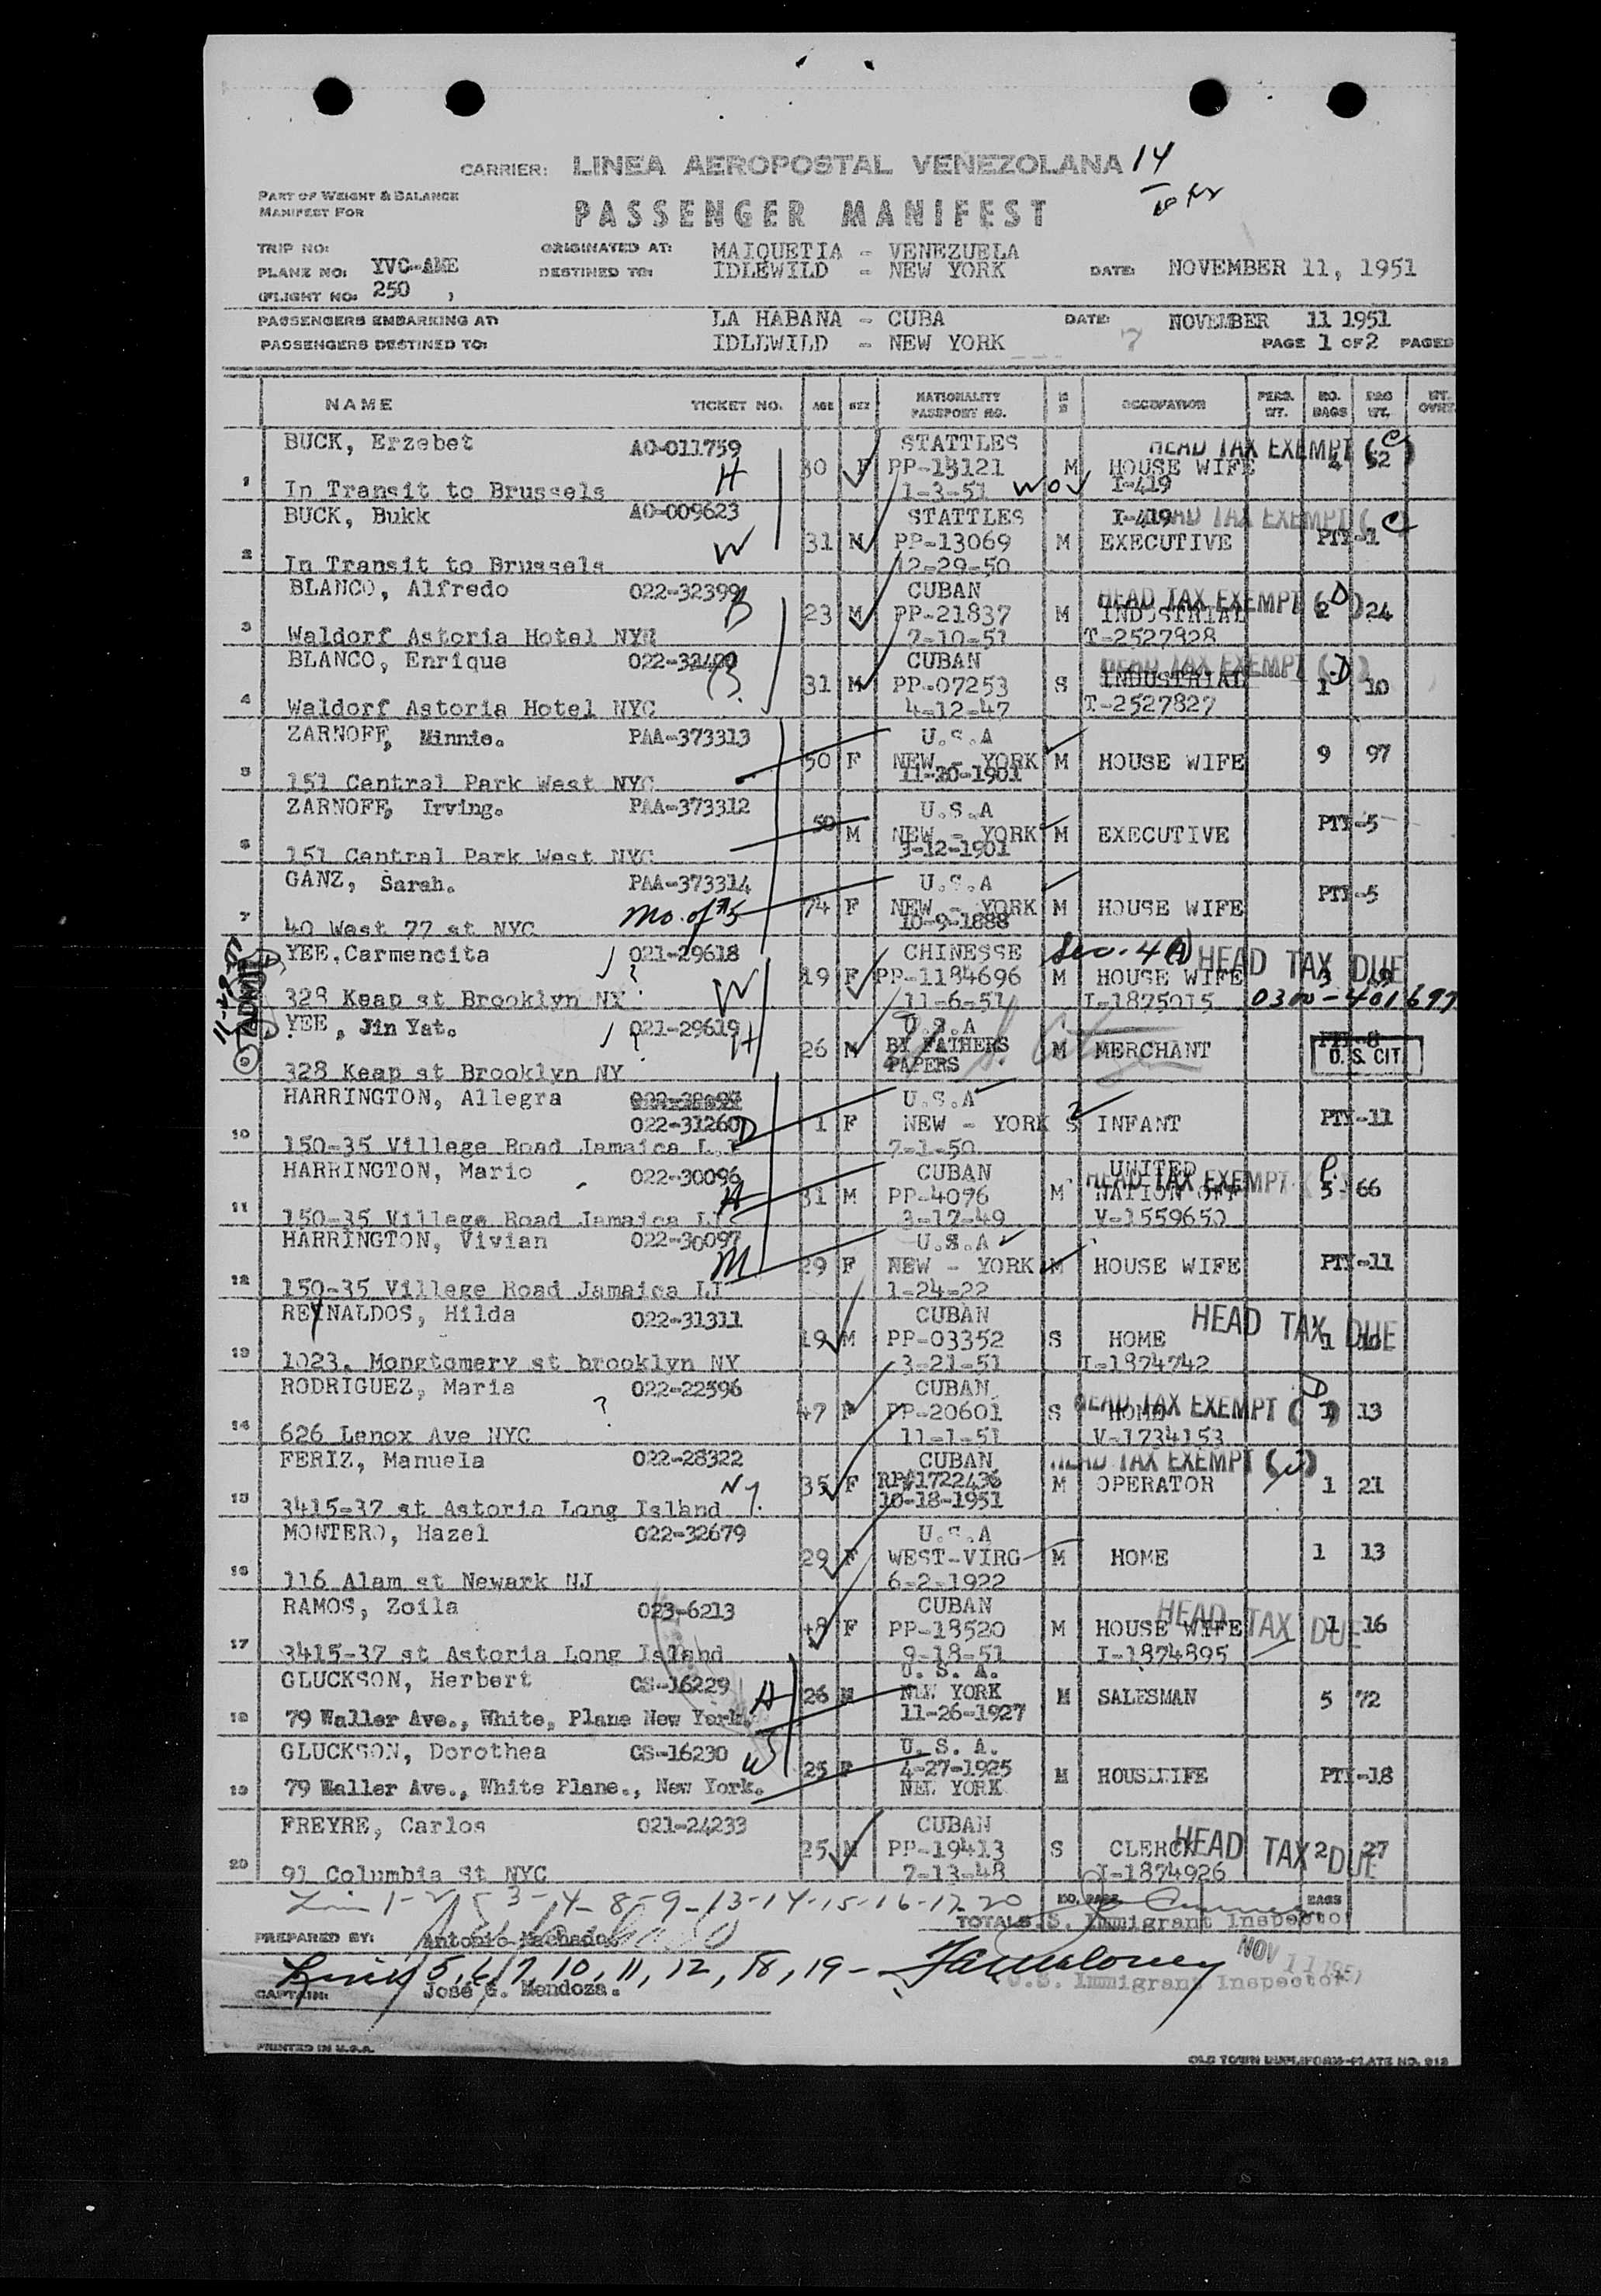 CARRIER: LINEA AEROPOSTAL VENEZOLANA 14
PART OF WEIGHT & BALANCE
MANIFEST FOR
PASSENGER MANIFEST
TRIP NO: ORIGINATED AT: MAIQUETIA - VENEZUELA
PLANE NO: YVC-AME DESTINED TO: IDLEWILD - NEW YORK DATE: NOVEMBER 11, 1951
(FLIGHT NO: 250 )
PASSENGERS EMBARKING AT: LA HABANA - CUBA DATE: NOVEMBER 11 1951
PASSENGERS DESTINED TO: IDLEWILD - NEW YORK 7 PAGE 1 OF 2 PAGES
NAME TICKET NO. AGE SEX NATIONALITY PASSPORT NO. M S OCCUPATION PERS. WT. NO. BAGS BAG WT. WT. OVRT.
BUCK, Erzebet AO-011759 STATTLES HEAD TAX EXEMPT (C)
H 30 F PP-13121 M HOUSE WIFE 4 52
1 In Transit to Brussels 1-3-51 WOV I-419
BUCK, Bukk AO-009623 STATTLES I-419 HEAD TAX EXEMPT ( C
W 31 M PP-13069 M EXECUTIVE PTY-1
2 In Transit to Brussels 12-29-50
BLANCO, Alfredo 022-32399 CUBAN HEAD TAX EXEMPT (D)
B 23 M PP-21837 M INDUSTRIAL 2 24
3 Waldorf Astoria Hotel NYC 7-10-51 T-2527828
BLANCO, Enrique 022-32400 CUBAN HEAD TAX EXEMPT (D)
B 31 M PP-07253 S INDUSTRIAL 1 10
4 Waldorf Astoria Hotel NYC 4-12-47 T-2527827
ZARNOFF, Minnie. PAA-373313 U.S.A
50 F NEW - YORK M HOUSE WIFE 9 97
5 151 Central Park West NYC 11-20-1901
ZARNOFF, Irving. PAA-373312 U.S.A
50 M NEW - YORK M EXECUTIVE PTY-5
6 151 Central Park West NYC 3-12-1901
GANZ, Sarah. PAA-373314 U.S.A
Mo. of #5 74 F NEW - YORK M HOUSE WIFE PTY-5
7 40 West 77 st NYC 10-9-1888
YEE, Carmencita 021-29618 CHINESSE Sec. 4(A) HEAD TAX DUE
? W 19 F PP-1184696 M HOUSE WIFE 3 19
ADMIT 328 Keap st Brooklyn NY 11-6-51 I-1875015 0300-401697
YEE, Jin Yat. 021-29619 U.S.A
? H 26 M BY FATHERS M MERCHANT PTY-8
328 Keap st Brooklyn NY PAPERS U.S. Citizen U.S. CIT
HARRINGTON, Allegra U.S.A
022-31260 D 1 F NEW - YORK S INFANT PTY-11
10 150-35 Villege Road Jamaica L.I 7-1-50
HARRINGTON, Mario 022-30096 CUBAN UNITED HEAD TAX EXEMPT
H 31 M PP-4076 M NATION OFF 5 - 66
11 150-35 Villege Road Jamaica LI 3-17-49 V-1559650
HARRINGTON, Vivian 022-30097 U.S.A
M 29 F NEW - YORK M HOUSE WIFE PTY-11
12 150-35 Villege Road Jamaica LI 1-24-22
REYNALDOS, Hilda 022-31311 CUBAN HEAD TAX DUE
19 M PP-03352 S HOME 1 10
13 1023. Mongtomery st brooklyn NY 3-21-51 I-1874742
RODRIGUEZ, Maria 022-22596 CUBAN HEAD TAX EXEMPT (D)
? 47 F PP-20601 S HOME 1 13
14 626 Lenox Ave NYC 11-1-51 V-1734153
FERIZ, Manuela 022-28322 CUBAN HEAD TAX EXEMPT
NY. 35 F RP#1722436 M OPERATOR 1 21
15 3415-37 st Astoria Long Island 10-18-1951
MONTERO, Hazel 022-32679 U.S.A
29 F WEST-VIRG M HOME 1 13
16 116 Alam st Newark NJ 6-2-1922
RAMOS, Zoila 023-6213 CUBAN HEAD TAX DUE
48 F PP-18520 M HOUSE WIFE 1 16
17 3415-37 st Astoria Long Island 9-18-51 I-1874895
GLUCKSON, Herbert GS-16229 U. S. A.
H 26 M NEW YORK M SALESMAN 5 72
18 79 Waller Ave., White, Plane New York. 11-26-1927
GLUCKSON, Dorothea GS-16230 U. S. A.
W 25 F 4-27-1925 M HOUSEWIFE PTY-18
19 79 Waller Ave., White Plane., New York. NEW YORK
FREYRE, Carlos 021-24233 CUBAN HEAD TAX DUE
25 M PP-19413 S CLERCK 2 27
20 91 Columbia St NYC 7-13-48 I-1874926
Lin 1-2 3-4-8-9-13-14-15-16-17-20 NO. PASS. BAGS
TOTALS U.S. Immigrant Inspector
PREPARED BY: Antonio Machado
Lines 5, 6, 7, 10, 11, 12, 18, 19 - NOV 11 1951
U.S. Immigrant Inspector
CAPTAIN: José G. Mendoza.
PRINTED IN U.S.A. OLD TOWN DUPLIFORM-PLATE NO. 912